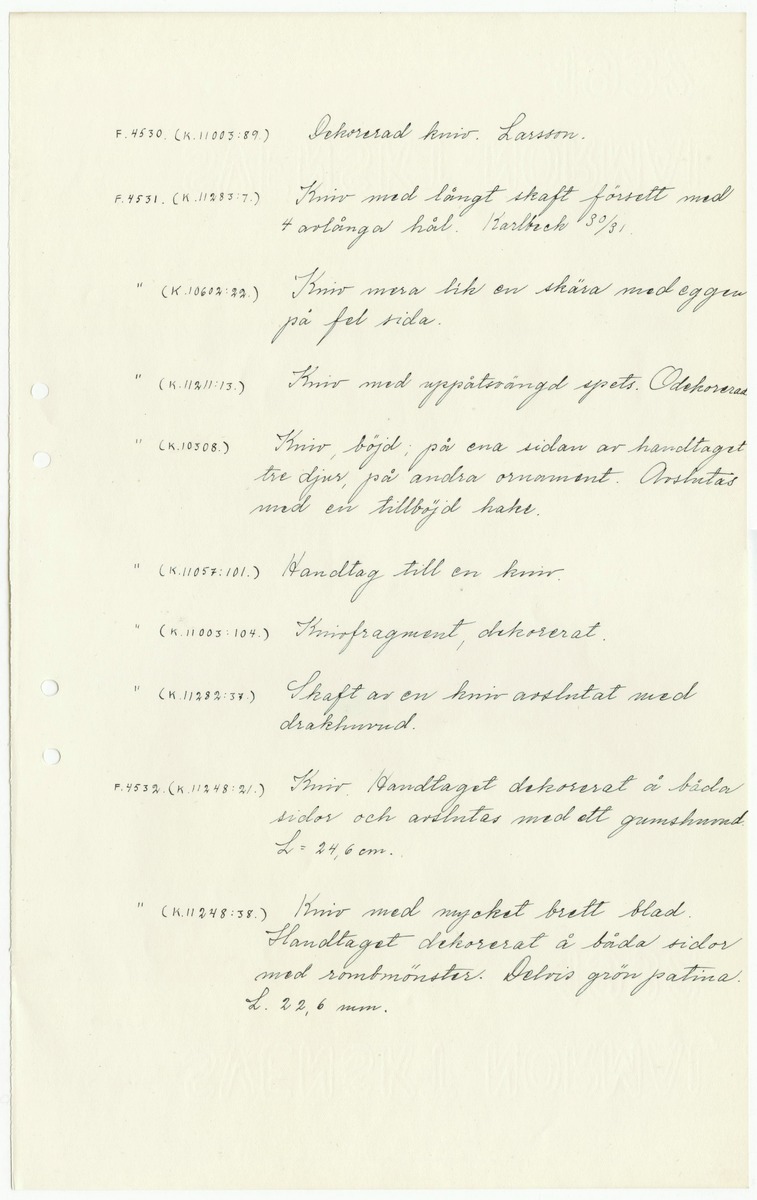 F.4530. (K.11003:89.) Dekorerad kniv. Larsson.
F.4531. (K.11283:7.) Kniv med långt skaft försett med
4 avlånga hål. Karlbeck 30/31.
" (K.10602:22.) Kniv mera lik en skära med eggen
på fel sida.
" (K.11211:13.) Kniv med uppåtsvängd spets. Odekorerad
" (K.10308.) Kniv, böjd; på ena sidan av handtaget
tre djur, på andra ornament. Avslutas
med en tillböjd hake.
" (K.11057:101.) Handtag till en kniv.
" (K.11003:104.) Knivfragment, dekorerat.
" (K.11282:37.) Skaft av en kniv avslutat med
drakhuvud.
F.4532. (K.11248:21.) Kniv. Handtaget dekorerat å båda
sidor och avslutas med ett gumshuvud.
L = 24,6 cm.
" (K.11248:38.) Kniv med mycket brett blad.
Handtaget dekorerat å båda sidor
med rombmönster. Delvis grön patina.
L. 22,6 mm.